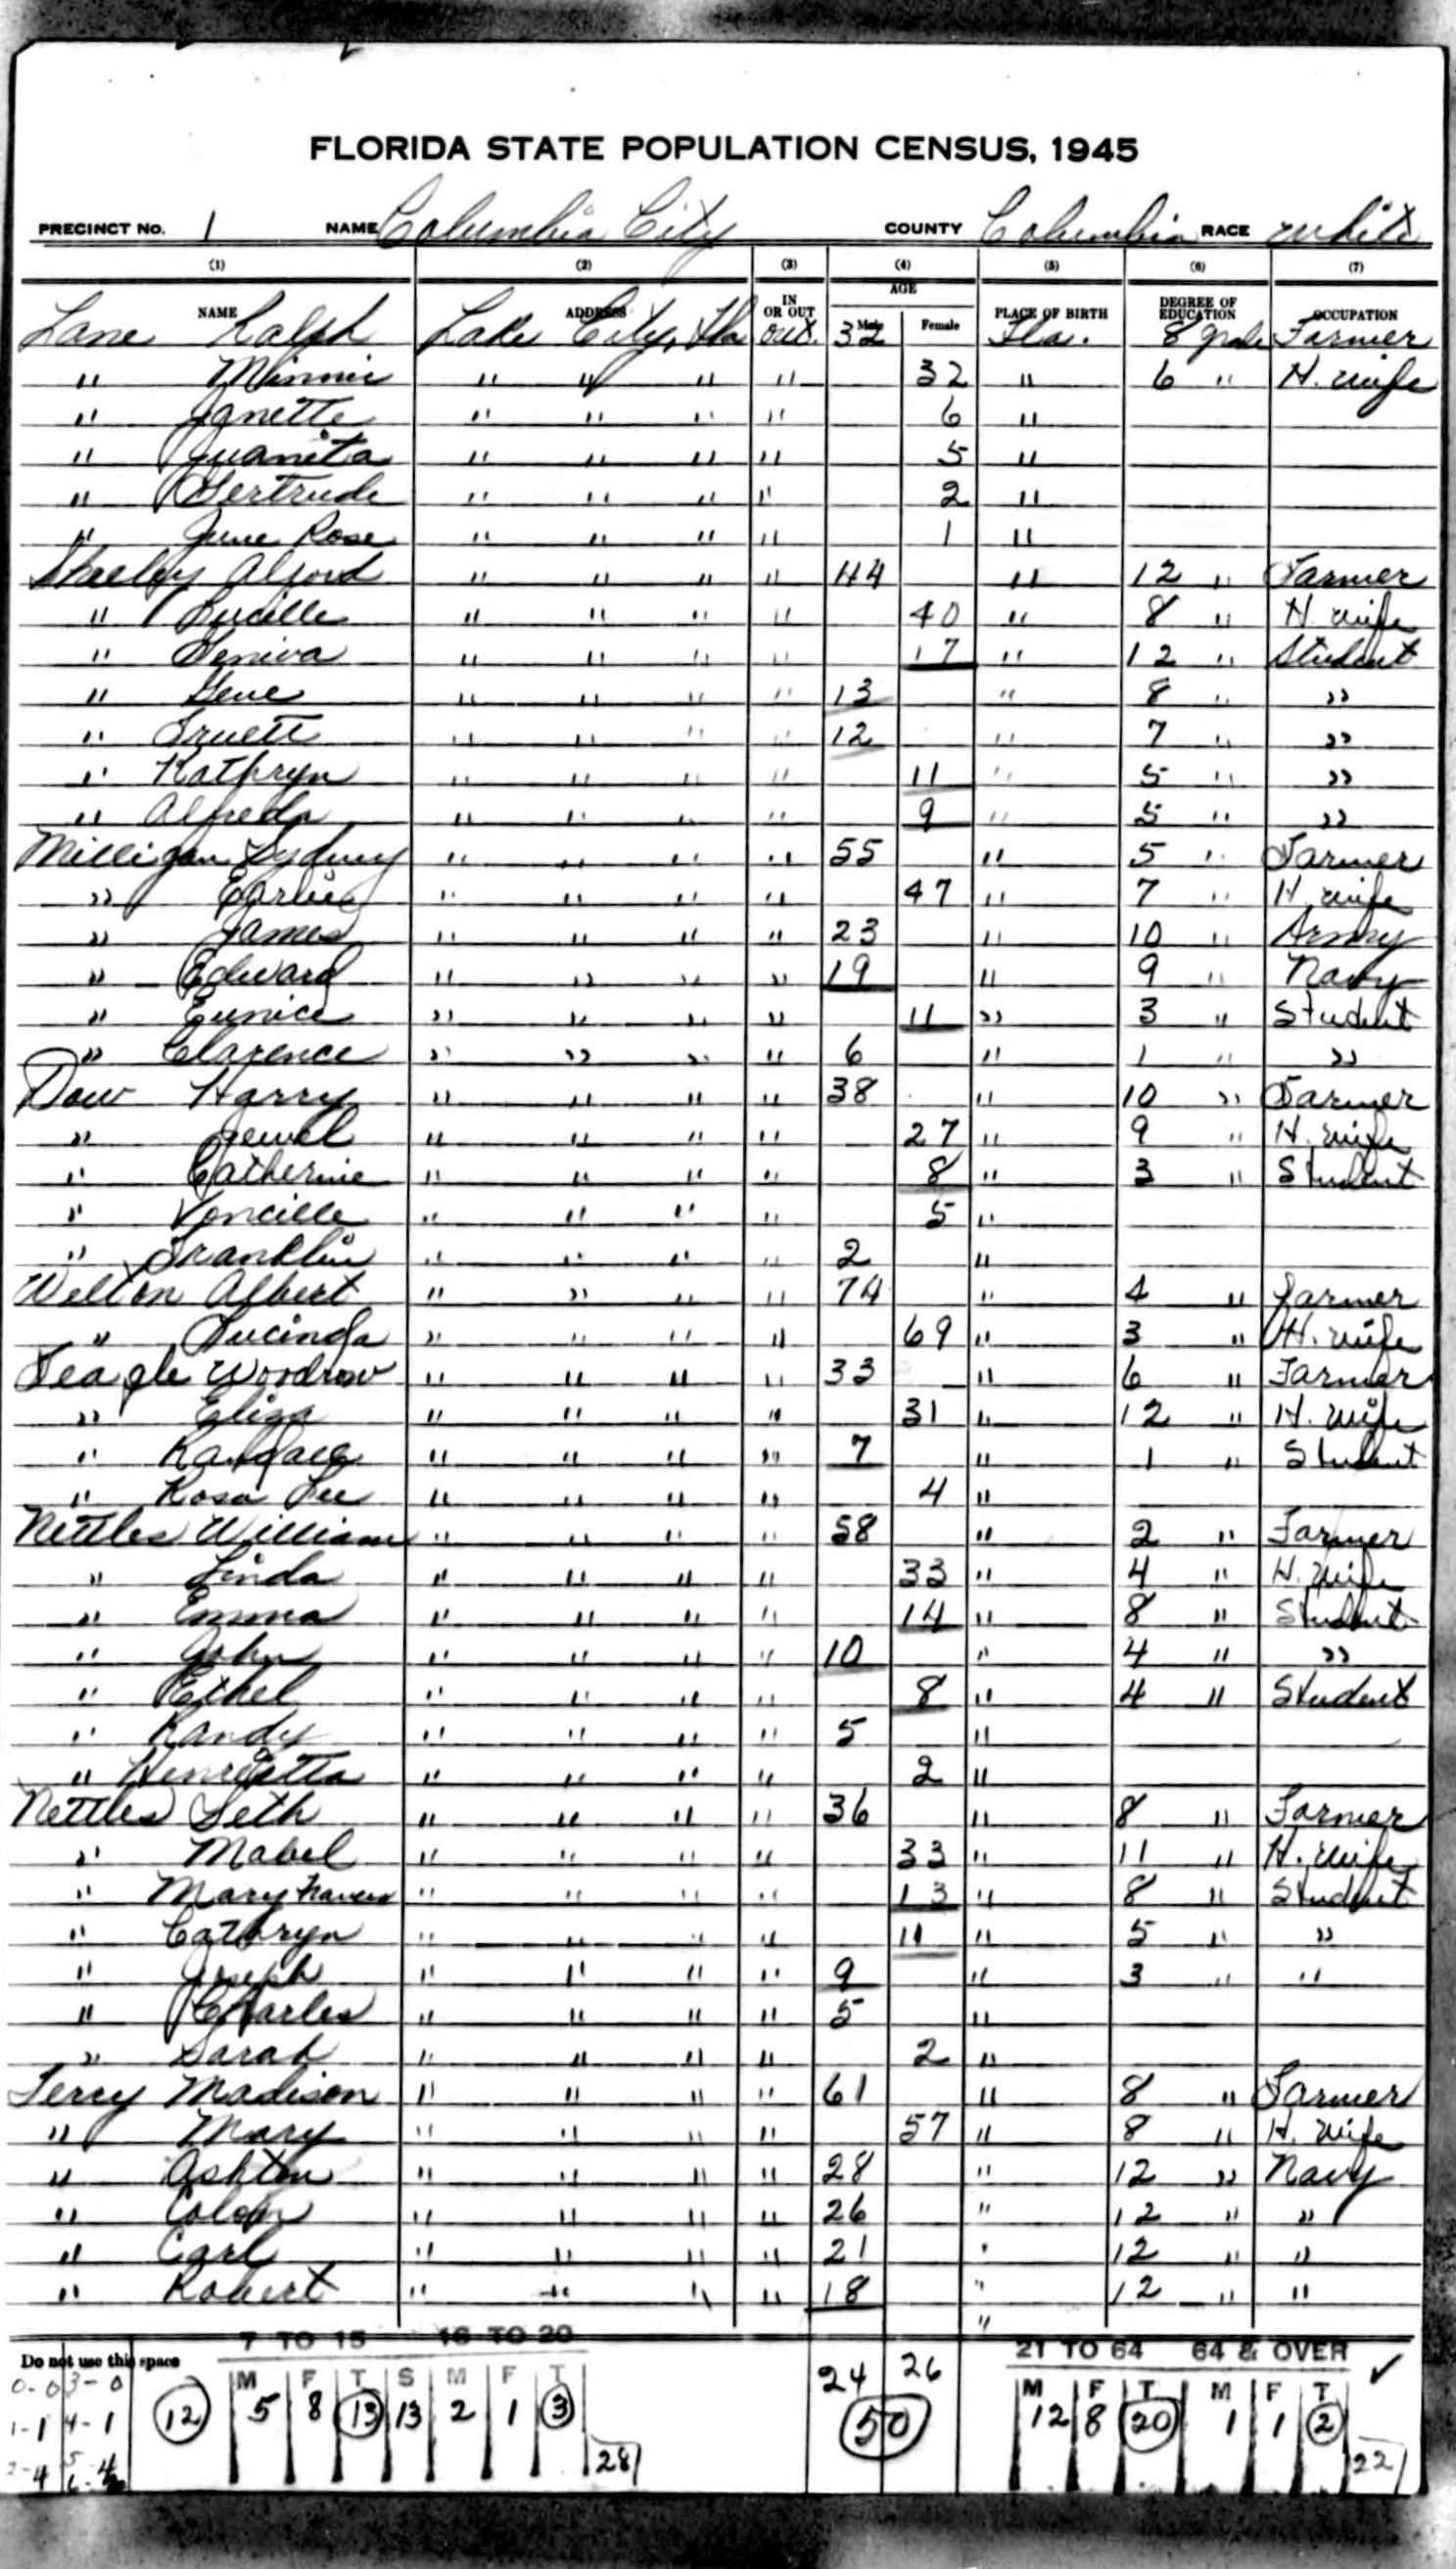 FLORIDA STATE POPULATION CENSUS, 1945
PRECINCT No. 1 NAME Columbia City COUNTY Columbia RACE White
(1) (2) (3) (4) (5) (6) (7)
NAME ADDRESS IN OR OUT AGE Male Female PLACE OF BIRTH DEGREE OF EDUCATION OCCUPATION
Lane Ralph Lake City, Fla out. 32 Fla. 8 grade Farmer
" Minnie " " " " 32 " 6 " H. wife
" Janette " " " " 6 "
" Juanita " " " " 5 "
" Gertrude " " " " 2 "
" June Rose " " " " 1 "
Sheeley Alford " " " " 44 " 12 " Farmer
" Lucille " " " " 40 " 8 " H. wife
" Geniva " " " " 17 " 12 " Student
" Gene " " " " 13 " 8 " "
" Truett " " " " 12 " 7 " "
" Kathryn " " " " 11 " 5 " "
" Alfreda " " " " 9 " 5 " "
Milligan Sydney " " " " 55 " 5 " Farmer
" Earlie " " " " 47 " 7 " H wife
" James " " " " 23 " 10 " Army
" Edward " " " " 19 " 9 " Navy
" Eunice " " " " 11 " 3 " Student
" Clarence " " " " 6 " 1 " "
Dow Harry " " " " 38 " 10 " Farmer
" Jewel " " " " 27 " 9 " H. wife
" Catherine " " " " 8 " 3 " Student
" Voncille " " " " 5 "
" Franklin " " " " 2 "
Welton Albert " " " " 74 " 4 " Farmer
" Lucinda " " " " 69 " 3 " H. wife
Feagle Woodrow " " " " 33 " 6 " Farmer
" Eliza " " " " 31 " 12 " H. wife
" " " " " 7 " 1 " Student
" Rosa Lee " " " " 4 "
Nettles William " " " " 58 " 2 " Farmer
" Linda " " " " 33 " 4 " H. wife
" Emma " " " " 14 " 8 " Student
" John " " " " 10 " 4 " "
" Ethel " " " " 8 " 4 " Student
" Randy " " " " 5 "
" Henrietta " " " " 2 "
Nettles Seth " " " " 36 " 8 " Farmer
" Mabel " " " " 33 " 11 " H. wife
" Mary Frances " " " " 13 " 8 " Student
" Cathryn " " " " 11 " 5 " "
" Joseph " " " " 9 " 3 " "
" Charles " " " " 5 "
" Sarah " " " " 2 "
Terry Madison " " " " 61 " 8 " Farmer
" Mary " " " " 57 " 8 " H. wife
" Ashton " " " " 28 " 12 " Navy
" Colon " " " " 26 " 12 " "
" Carl " " " " 21 " 12 " "
" Robert " " " " 18 " 12 " "
"
7 TO 15 16 TO 20 21 TO 64 64 & OVER
Do not use this space 24 26
M F T S M F T M F T M F T
0-0 3-0
1-1 4-1 12 5 8 13 13 2 1 3 50 12 8 20 1 1 2
2-4 5 28 22